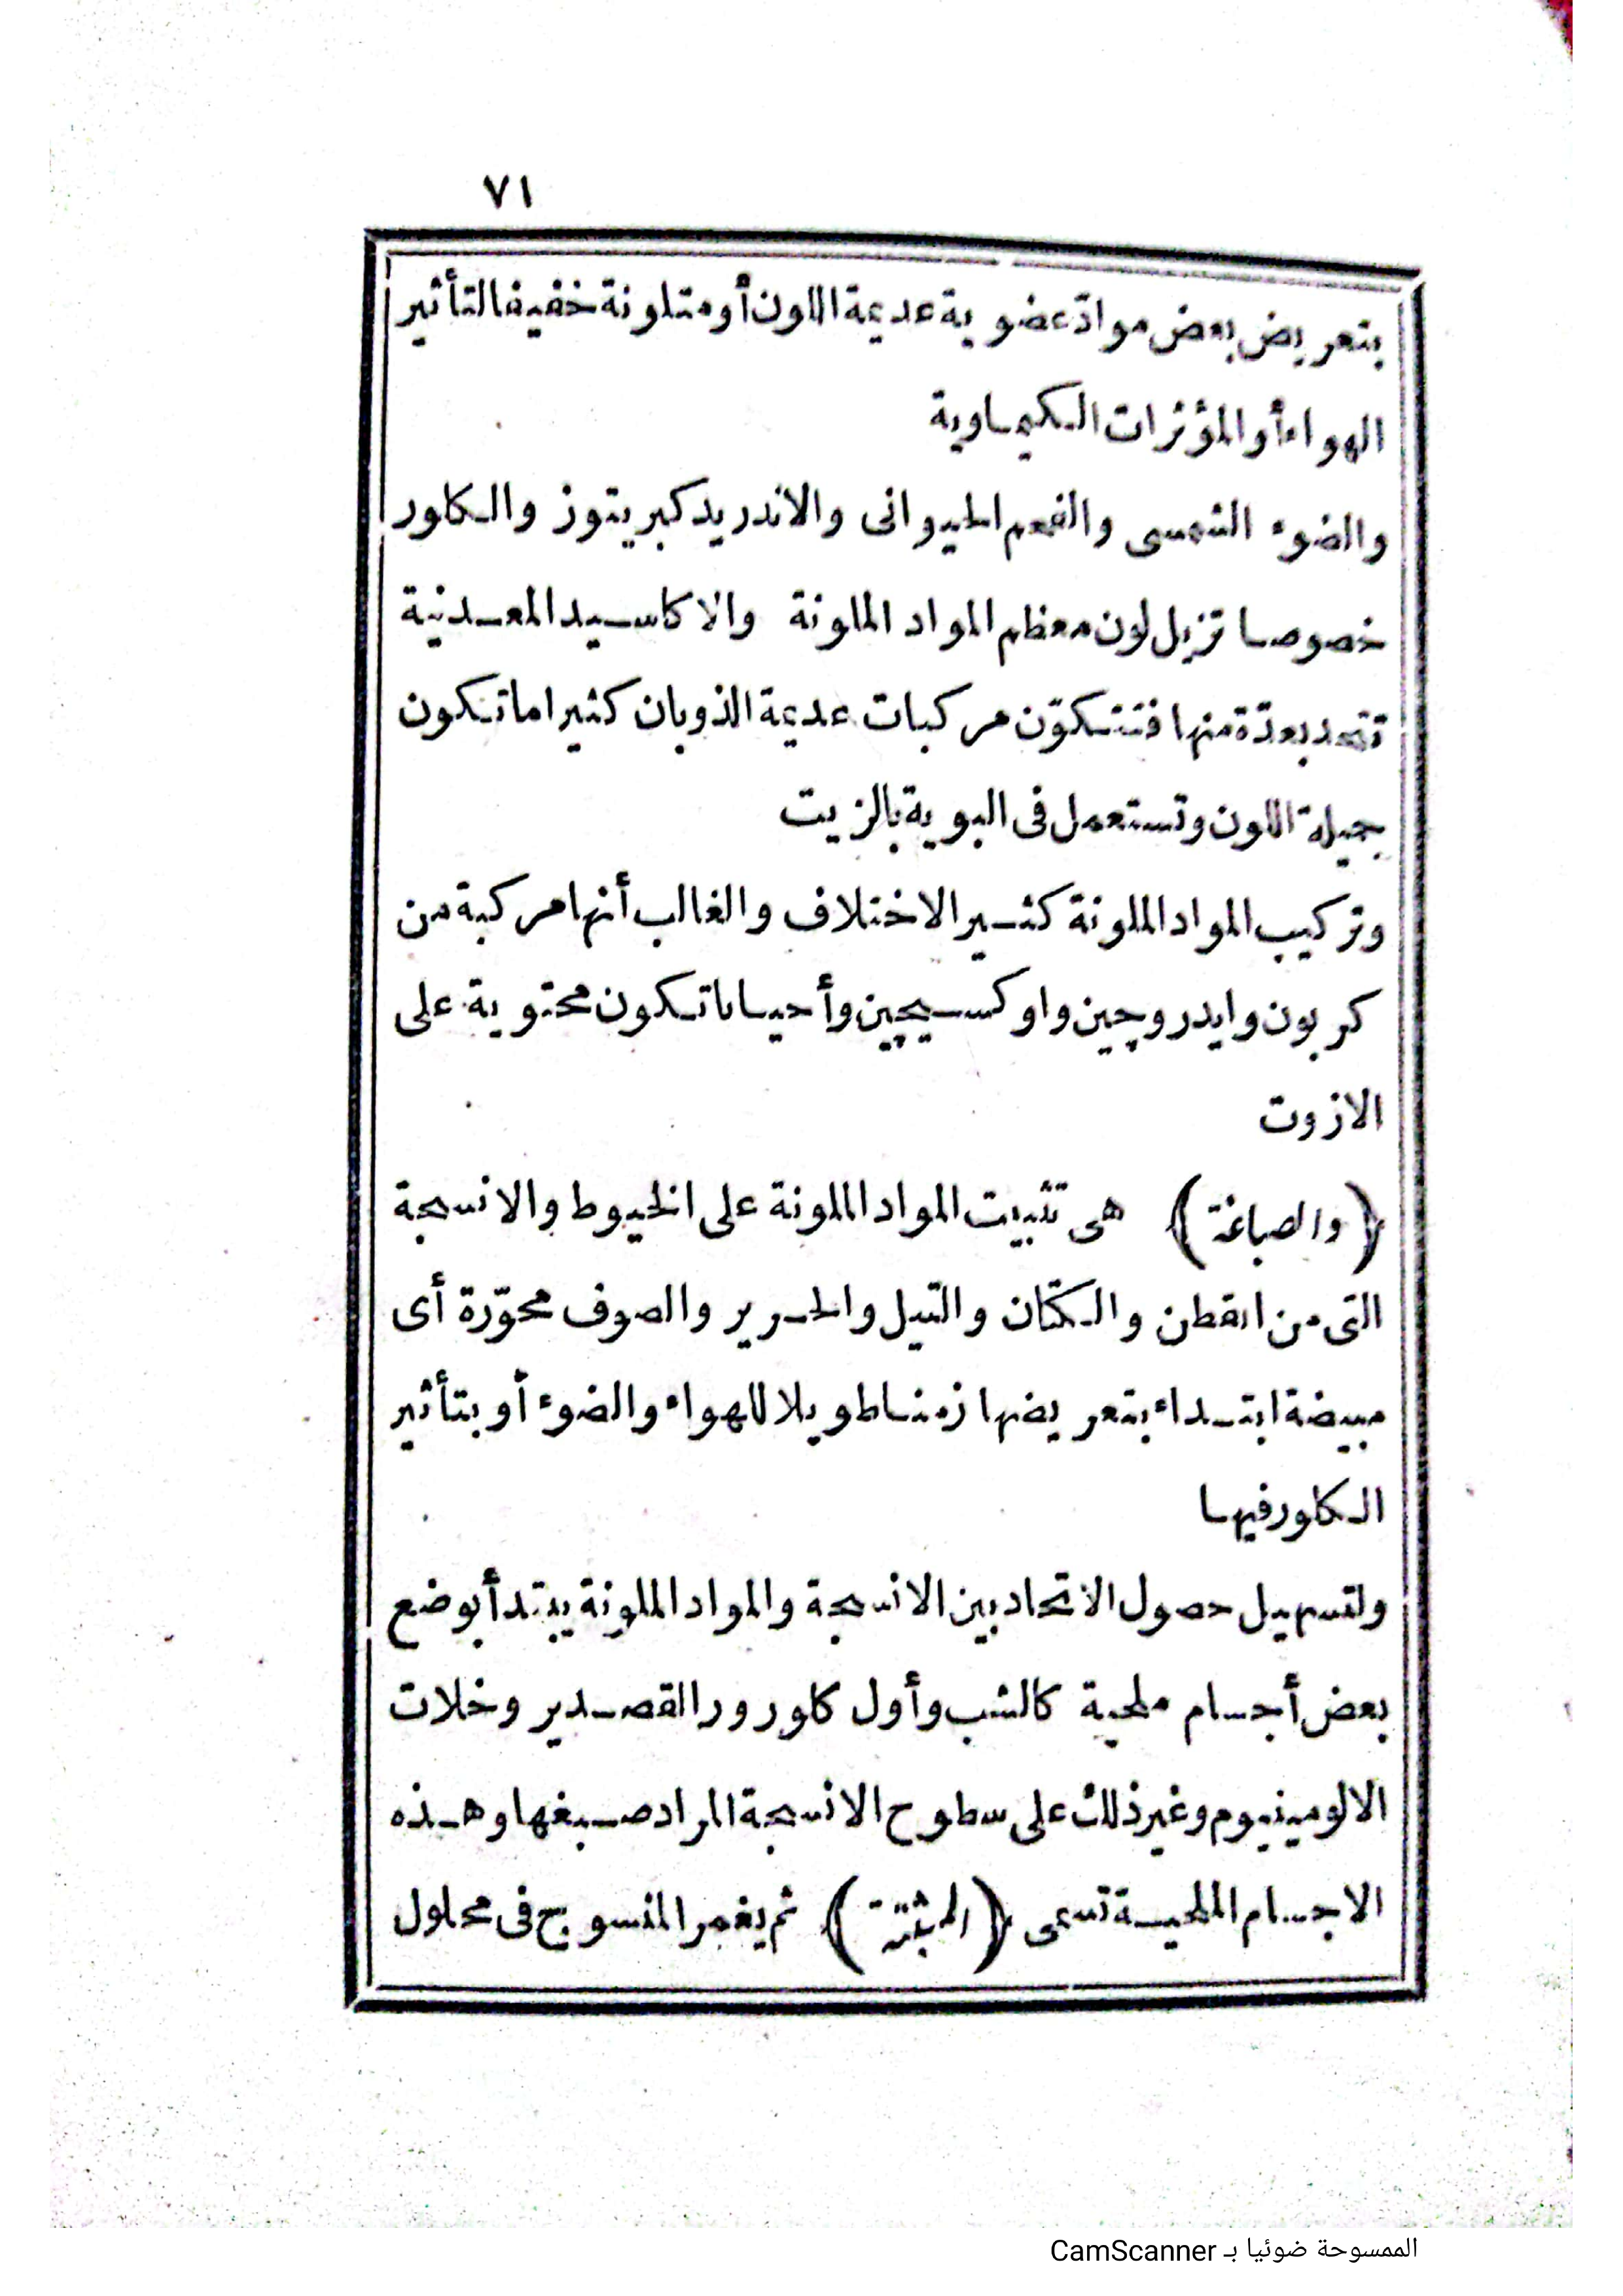 ٧١
بتعريض بعض موادّ عضوية عديمة اللون أو متلونة خفيفا لتأثير
الهواء أو المؤثرات الكيماوية
والضوء الشمسى والفحم الحيوانى والاندريد كبريتوز والكلور
خصوصا تزيل لون معظم المواد الملونة والاكاسيد المعدنية
تتحد بعدّة منها فتتكوّن مركبات عديمة الذوبان كثيرا ما تكون
جميلة اللون وتستعمل فى البوية بالزيت
وتركيب المواد الملونة كثير الاختلاف والغالب أنها مركبة من
كربون وايدروچين واوكسيچين وأحيانا تكون محتوية على
الازوت
(والصباغة) هى تثبيت المواد الملونة على الخيوط والانسجة
التى من القطن والكتّان والتيل والحرير والصوف محوّرة أى
مبيضة ابتداء بتعريضها زمنا طويلا للهواء والضوء أو بتأثير
الكلور فيها
ولتسهيل حصول الاتحاد بين الانسجة والمواد الملونة يبتدأ بوضع
بعض أجسام ملحية كالشب وأول كلورور القصدير وخلات
الالومينيوم وغير ذلك على سطوح الانسجة المراد صبغها وهذه
الاجسام الملحية تسمى (المثبتة) ثم يغمر المنسوج فى محلول
الممسوحة ضوئيا بـ CamScanner